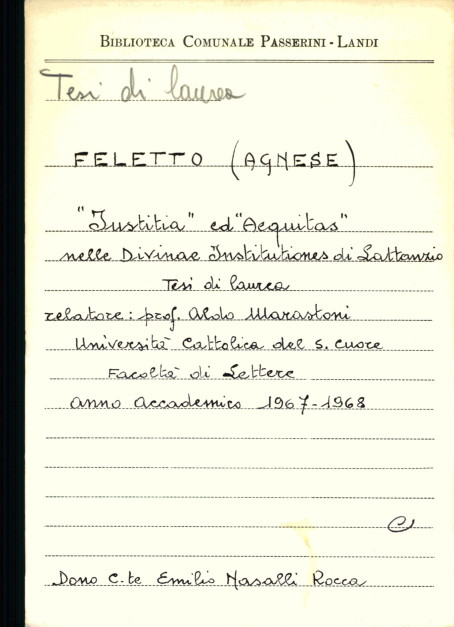 BIBLIOTECA COMUNALE PASSERINI - LANDI
Tesi di laurea
FELETTO (AGNESE)
"Iustitia" ed "Aequitas"
nelle Divinae Institutiones di Lattanzio
Tesi di laurea
relatore: prof. Aldo Marastoni
Università Cattolica del S. Cuore
Facoltà di Lettere
Anno Accademico 1967-1968
C
Dono C.te Emilio Nasalli Rocca